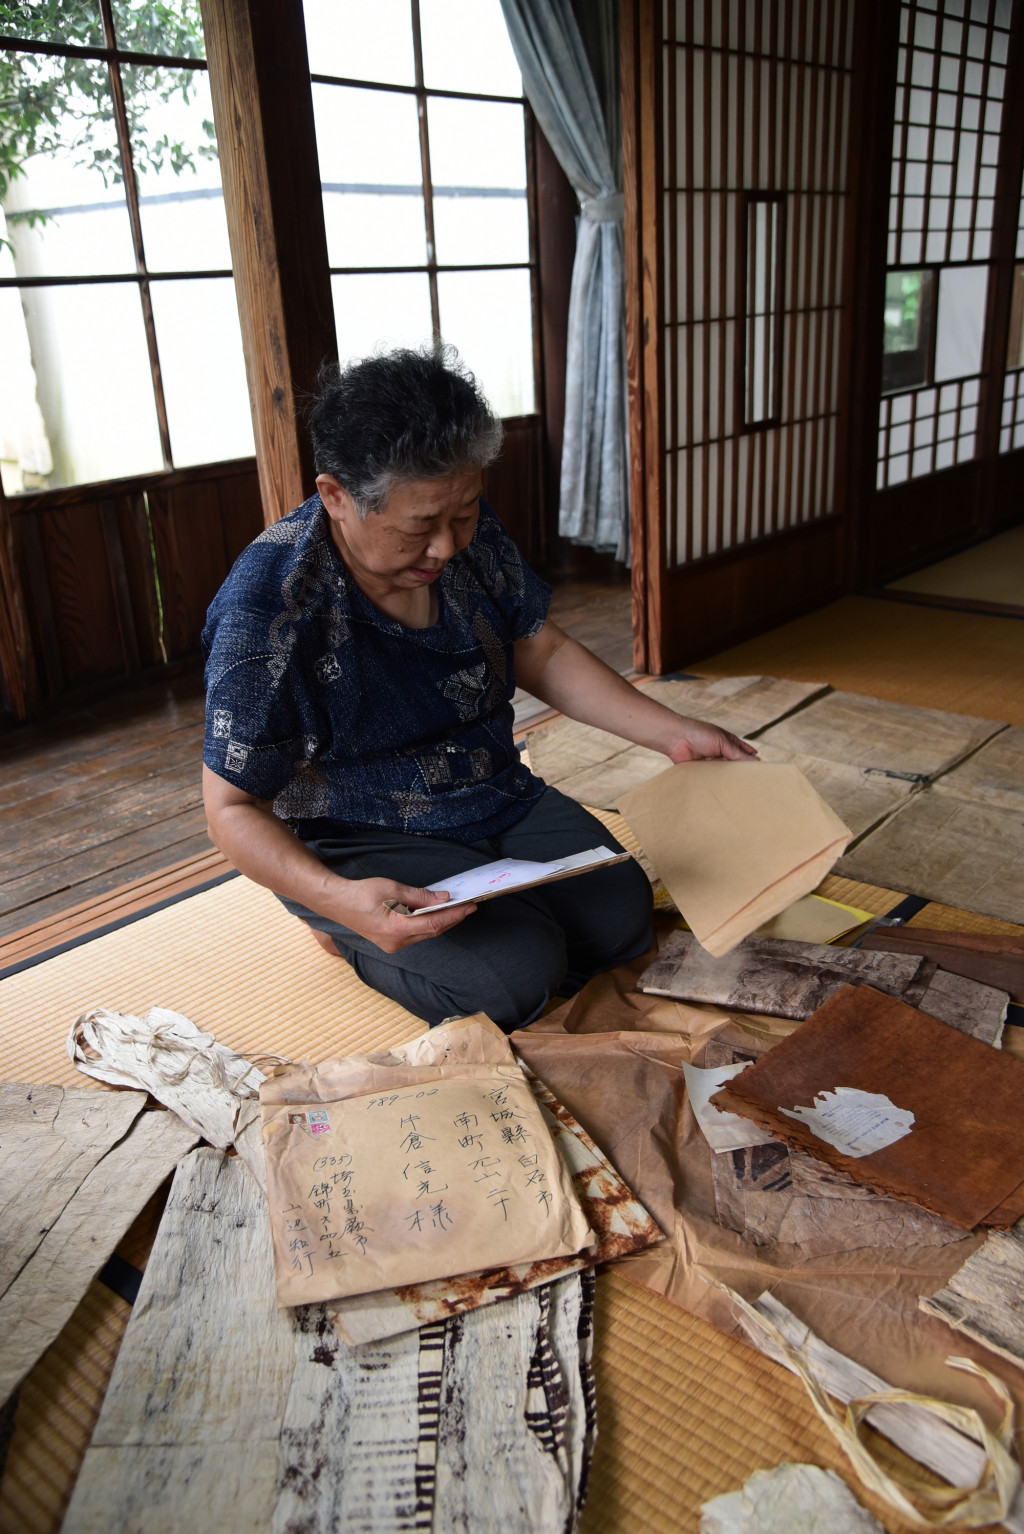 989-02
宮城縣白石市
南町元山二十
片倉信光様
(335)
埼玉県蕨市
錦町六-四-五
山辺知行